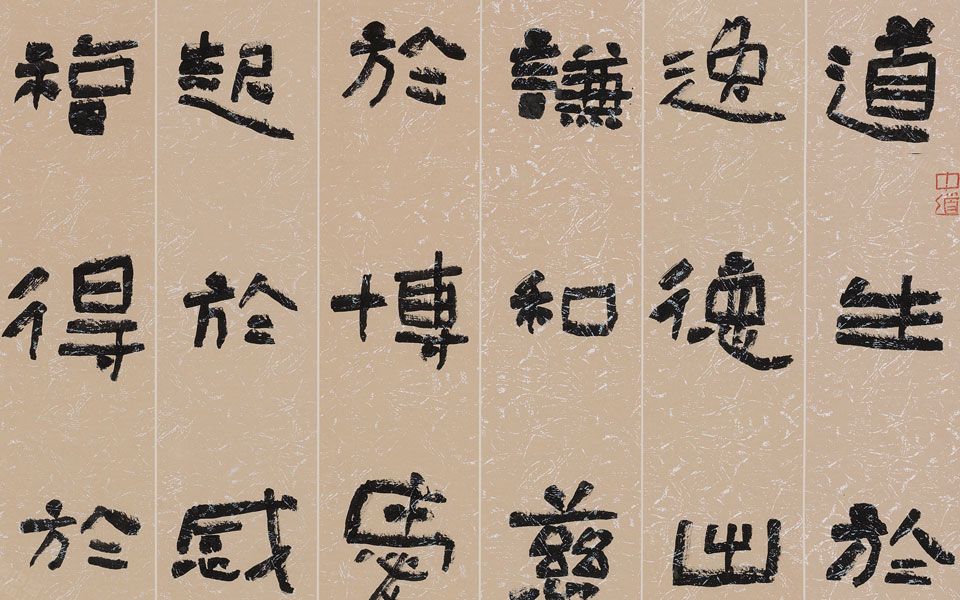 道生於
逸德出
謙和慈
於博愛
起於感
福得於
中道